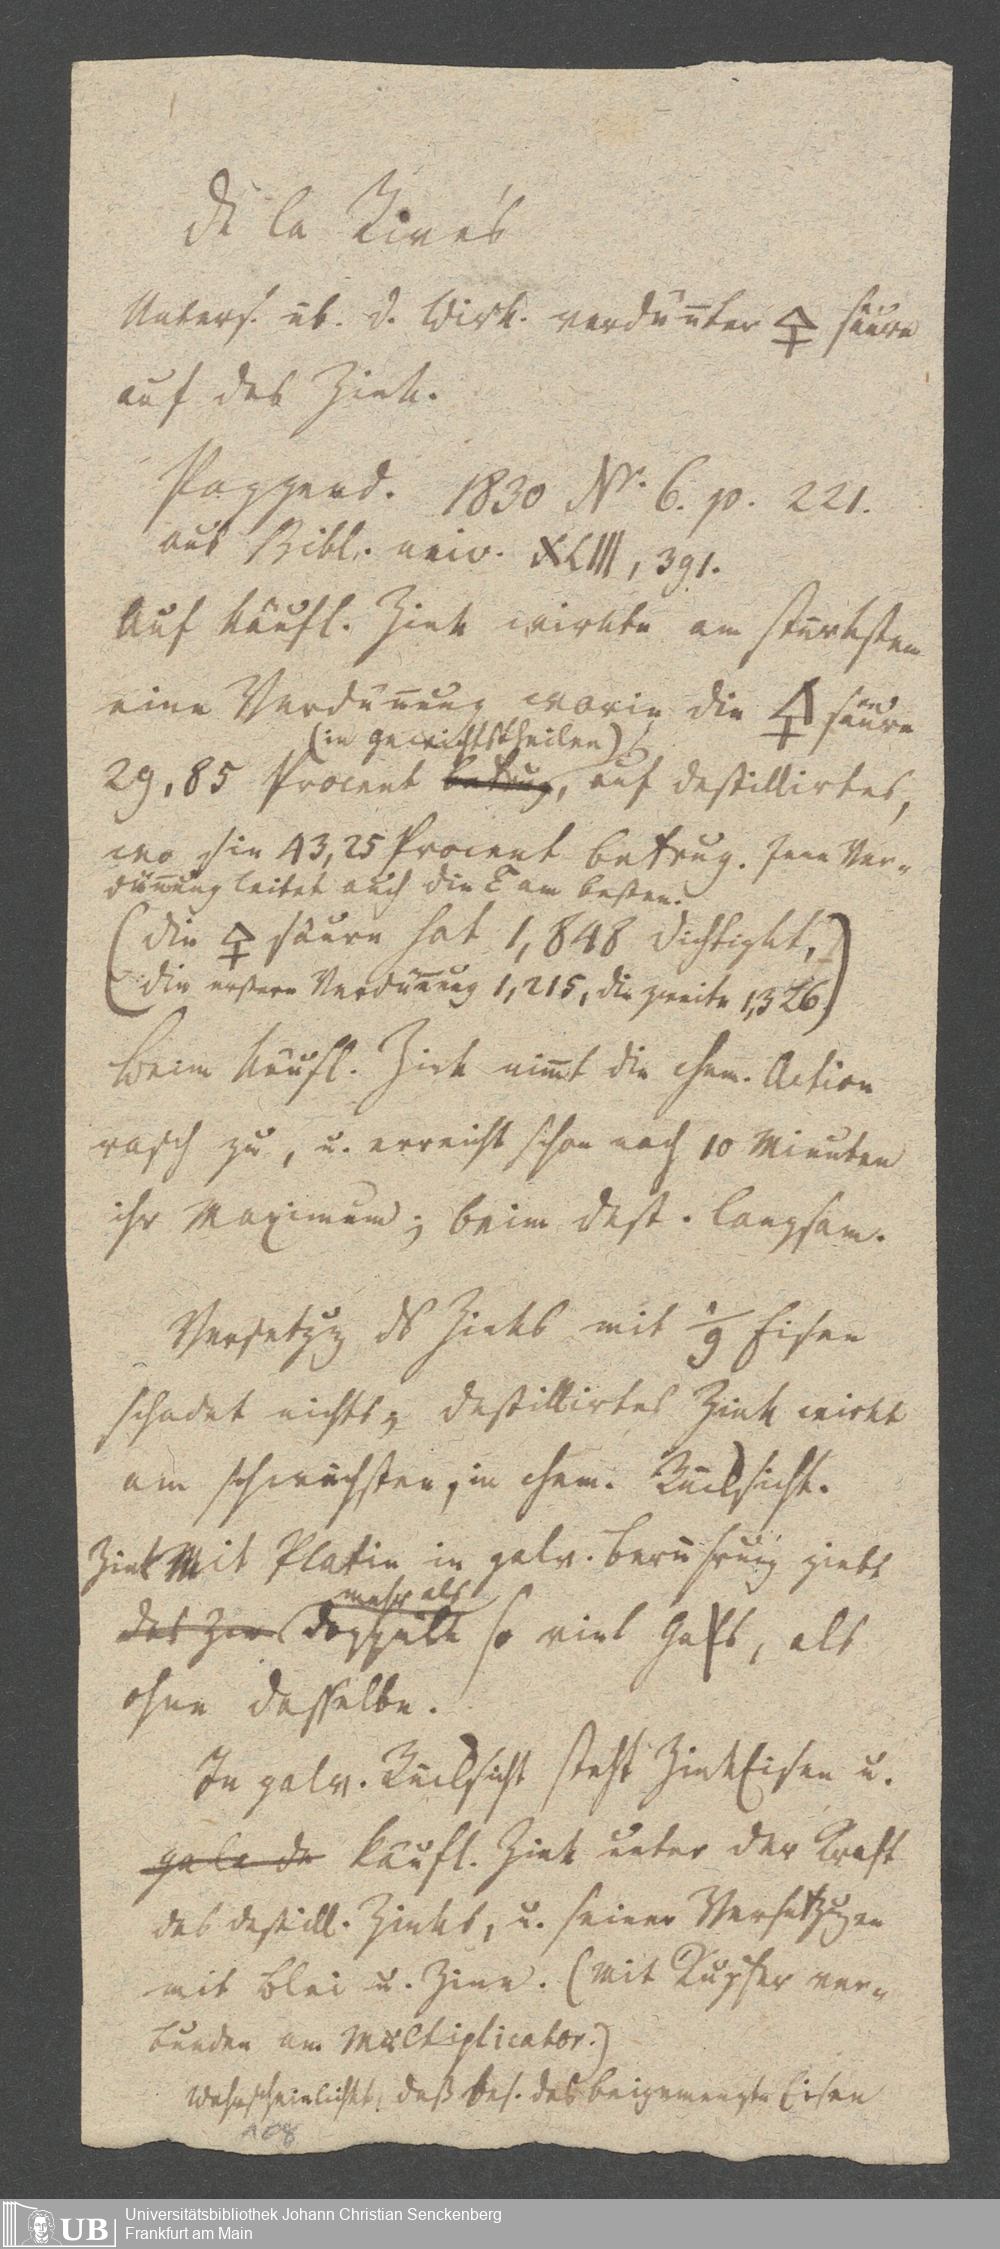 De la Rive's
Unters. üb. d. Wirk. verdünnter 🜍 säure
auf das Zink.
Poggend. 1830 Nr. 6. p. 221.
aus Bibl. univ. XLIII, 391.
Auf käufl. Zink wirkte am stärksten
eine Verdünnung worin die 🜍 säure
(in Gewichtstheilen)
29,85 Procent betrug, auf destillirtes,
wo sie 43,25 Procent betrug. Jene Ver-
dünnung leitet auch die E am besten.
(die 🜍 säure hat 1,848 Dichtigkt,
die erstere Verdünnung 1,215, die zweite 1,326.)
Beim käufl. Zink nimmt die chem. Action
rasch zu, u. erreicht schon nach 10 Minuten
ihr Maximum; beim dest. langsam.
Versetzg ds Zinks mit 1/9 Eisen
schadet nichts; destillirtes Zink wirkt
am schwächsten, in chem. Rücksicht.
Zink Mit Platin in galv. Berührung giebt
mehr als
das Zin doppelt so viel Gas, als
ohne dasselbe.
In galv. Rücksicht steht ZinkEisen u.
käufl. Zink unter der Kraft
des destill. Zinks, u. seiner Versetzgen
mit Blei u. Zinn. (Mit Kupfer ver-
bunden am Multiplicator.)
Wahrscheinlichkt, daß bes. das beigemengte Eisen
108
UB
Universitätsbibliothek Johann Christian Senckenberg
Frankfurt am Main